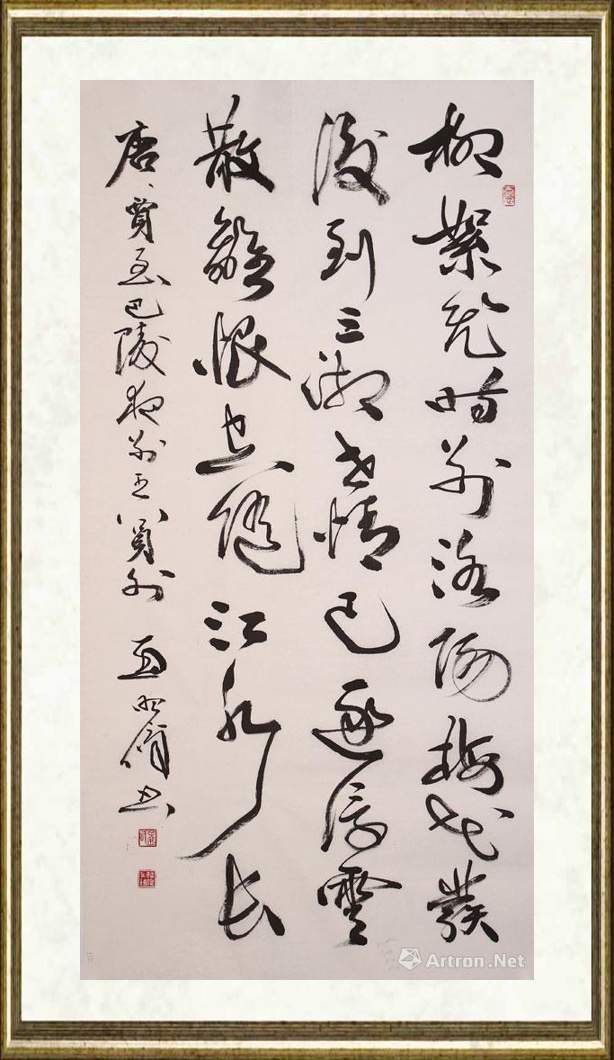 柳絮飛時別洛陽梅花發
後到三湘世情已逐浮雲
散離恨空隨江水長
唐賈至巴陵夜別王八員外 書
Artron.Net